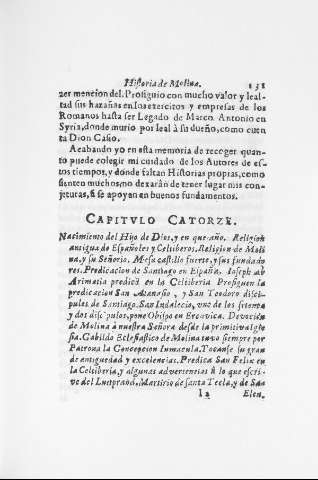 Historia de Molina. 131
zer mencion del. Prosiguio con mucho valor y leal-
tad sus hazañas en los exercitos y empresas de los
Romanos hasta ser Legado de Marco. Antonio en
Syria, donde murio por leal à su dueño, como cuen
ta Dion Casio.
Acabando yo en esta memoria de recoger quan-
to puede colegir mi cuidado de los Autores de es-
tos tiempos, y donde faltan Historias propras, como
siento muchos no dexarán de tener lugar mis con-
jeturas, si se apoyan en buenos fundamentos.
CAPITVLO CATORZE.
Nacimiento del Hijo de Dios, y en que año. Religion
antigua de Españoles y Celtiberos. Religion de Moli
na, y su Señorio. Mesa castillo fuerte, y sus fundado
res. Predicacion de Santiago en España. Ioseph ab
Arimatia predicò en la Celtiberia Prosiguen la
predicacion San Atanasio, y San Teodoro disci-
pulos de Santiago. San Indalecio, vno de los setenta
y dos discipulos, pone Obispo en Ercavica. Devocion
de Molina à nuestra Señora desde la primitiva Igle
sia. Cabildo Eclesiastico de Molina tuvo siempre por
Patrona la Concepcion Inmacula. Tocanse su gran
de antiguedad y excelencias. Predica San Felix en
la Celtiberia, y algunas advertencias à lo que escri-
ve del Luitprand. Martirio de santa Tecla, y de San
I 2 Elen.